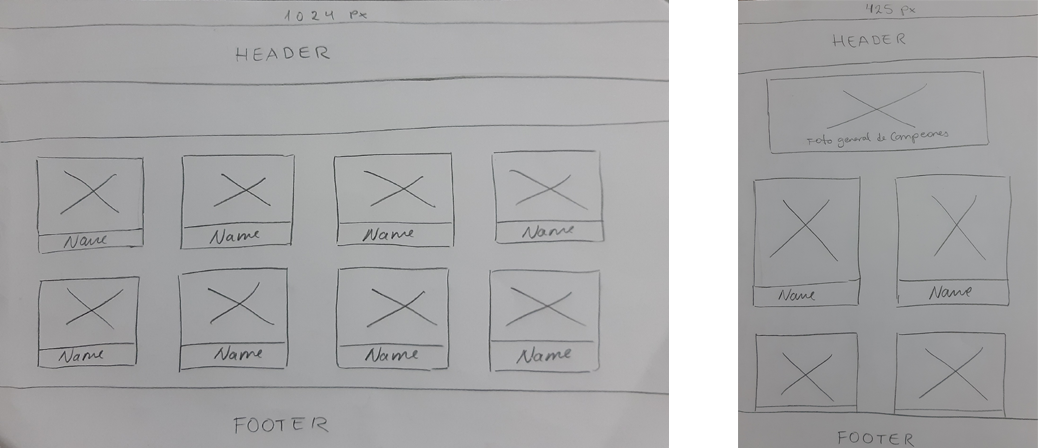 1024 px
HEADER
Name
Name
Name
Name
Name
Name
Name
Name
FOOTER
425 px
HEADER
Foto general de Campeones
Name
Name
FOOTER